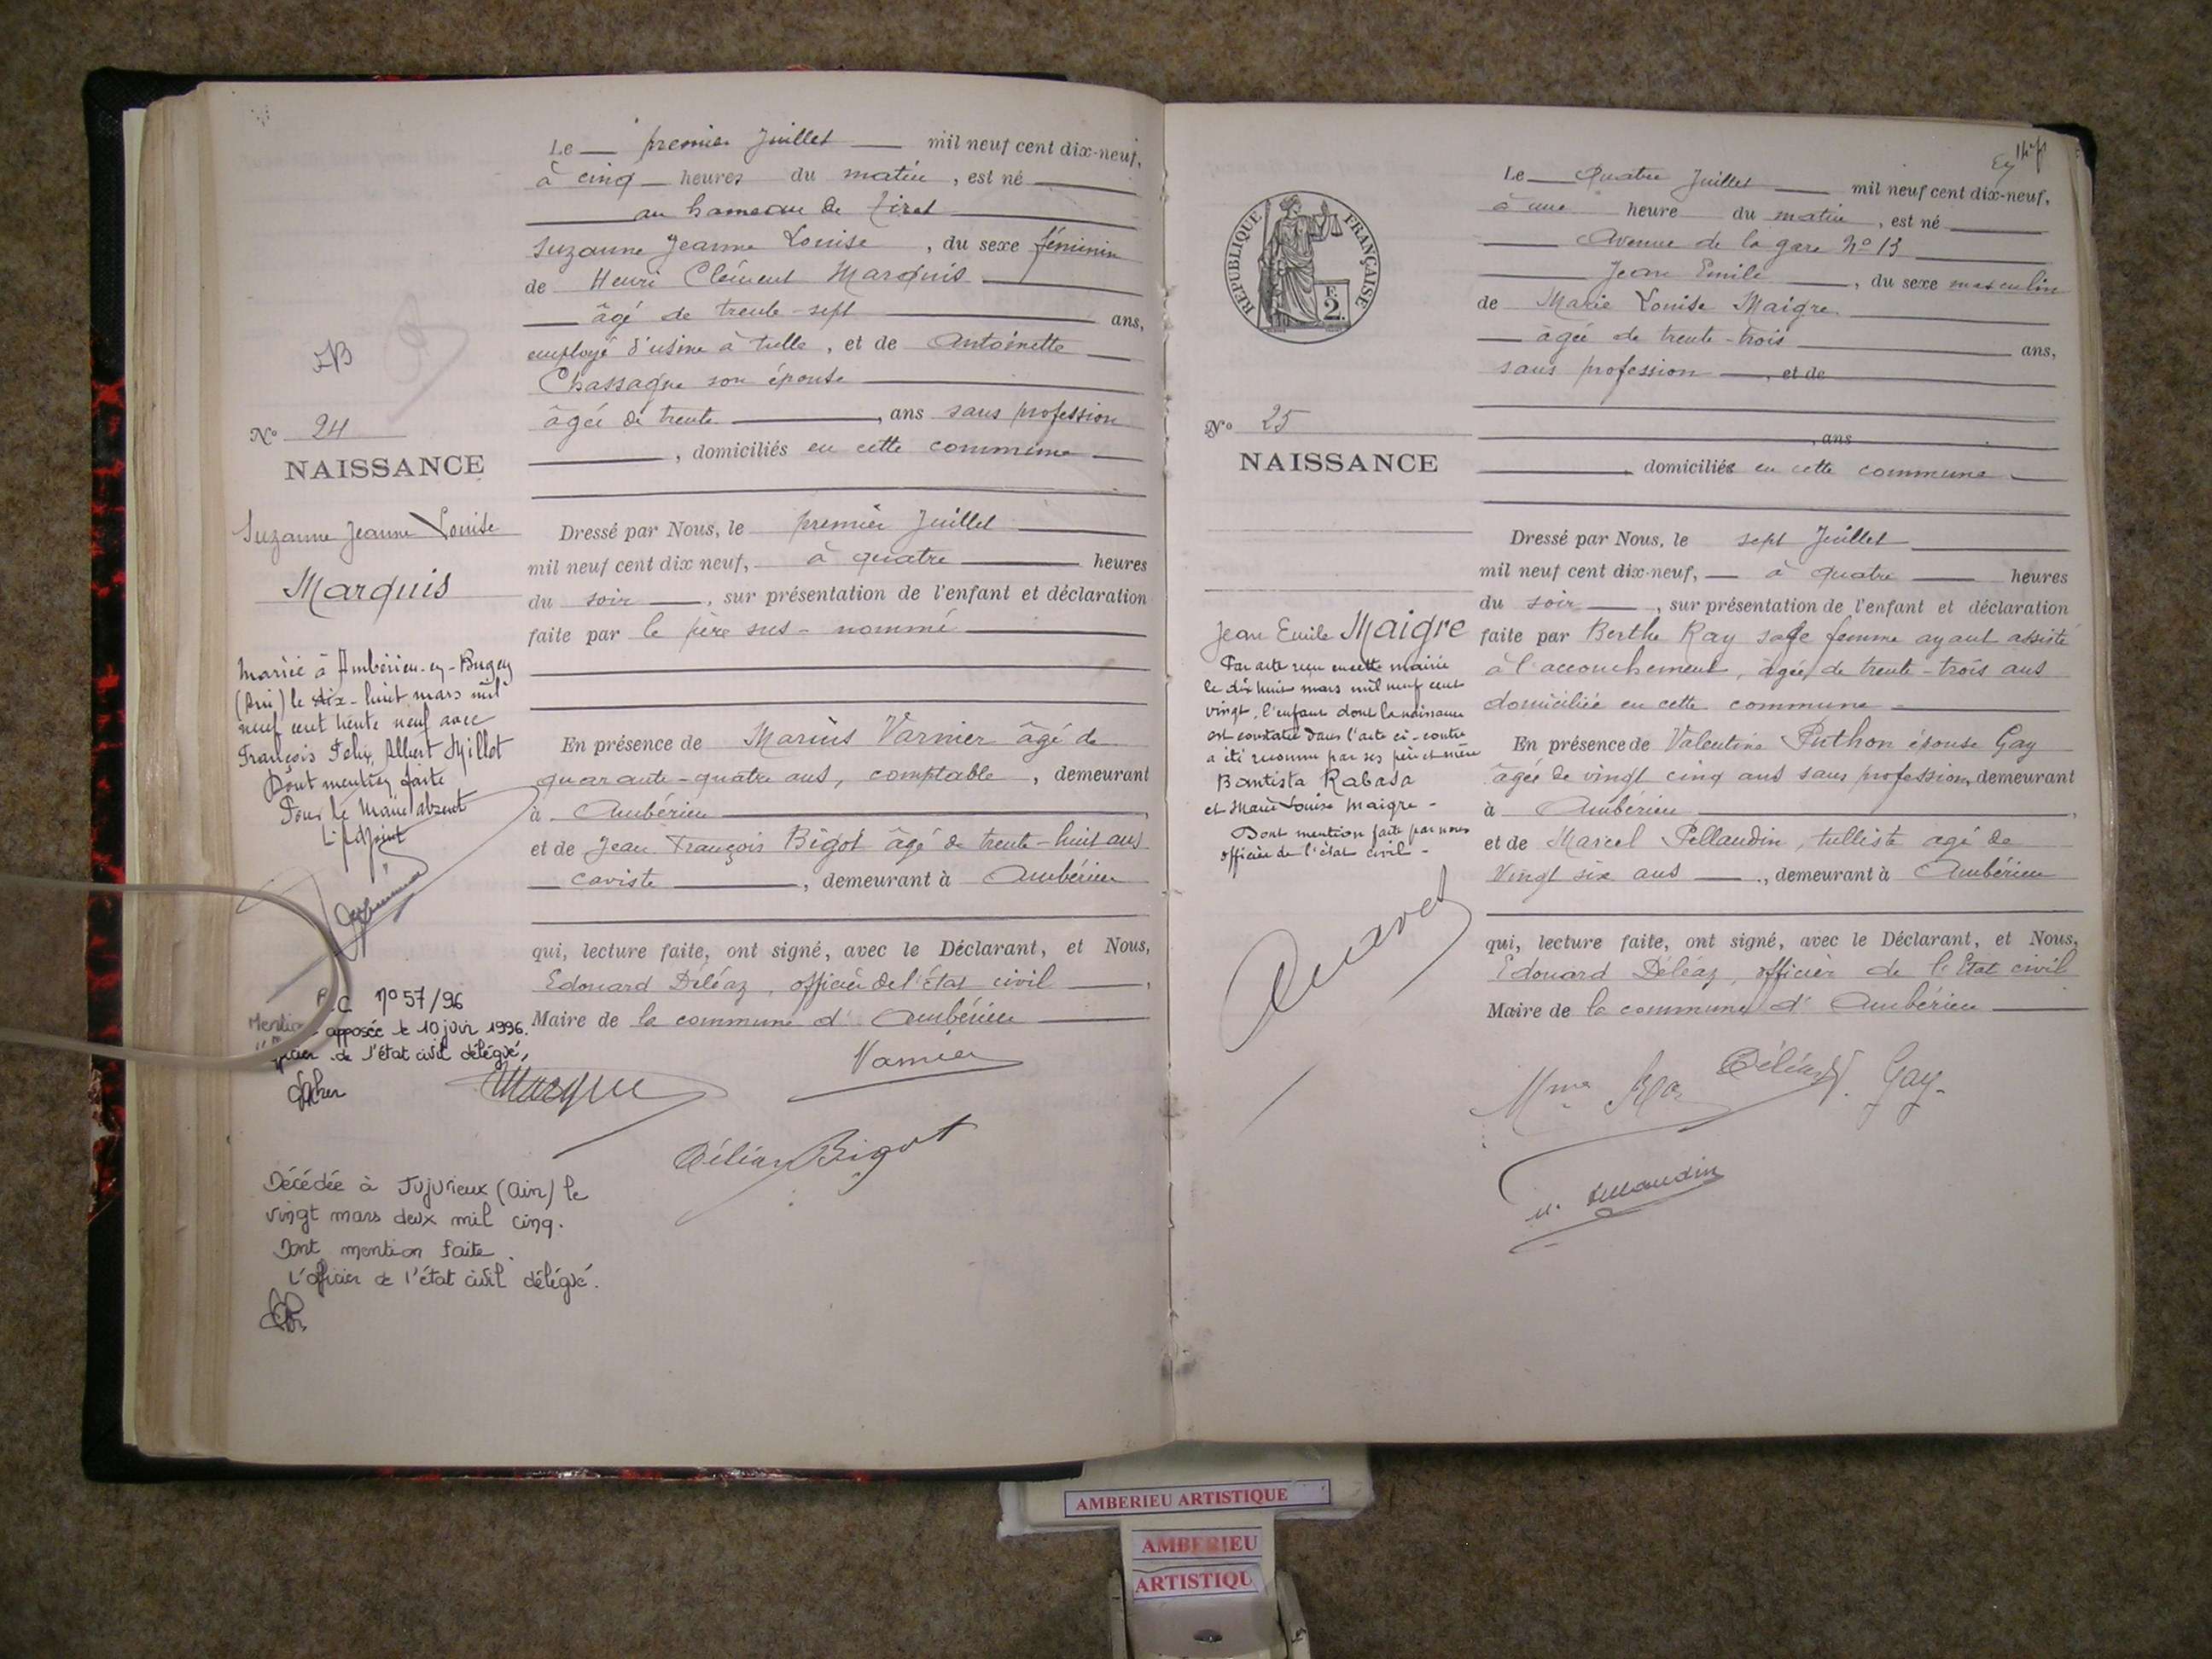 Le premier Juillet mil neuf cent dix-neuf,
à cinq heures du matin, est né
au hameau de Tiret
Suzanne Jeanne Louise, du sexe féminin
de Henri Clément Marquis
âgé de trente-sept ans,
employé d'usine à tulle, et de Antoinette
Chassagne son épouse
âgée de trente, ans sans profession
, domiciliés en cette commune
Dressé par Nous, le premier Juillet
mil neuf cent dix neuf, à quatre heures
du soir, sur présentation de l'enfant et déclaration
faite par le père sus-nommé
En présence de Marius Varnier âgé de
quarante-quatre ans, comptable, demeurant
à Ambérieu,
et de Jean François Bigot âgé de trente-huit ans
caviste, demeurant à Ambérieu
qui, lecture faite, ont signé, avec le Déclarant, et Nous,
Edouard Déléaz, officier de l'État civil,
Maire de la commune d'Ambérieu
Varnier
Déléaz Bigot
N° 24
NAISSANCE
Suzanne Jeanne Louise
Marquis
Mariée à Ambérieu-en-Bugey
(Ain) le dix-huit mars mil
neuf cent trente neuf avec
François Felix, Albert Millet
Dont mention faite
Pour le Maire absent
L'Adjoint
R.C. n° 57/96
Mention apposée le 10 juin 1996.
de l'état civil délégué,
Décédée à Jujurieux (Ain) le
vingt mars deux mil cinq.
Dont mention faite.
L'officier de l'état civil délégué.
Le Quatre Juillet mil neuf cent dix-neuf,
à une heure du matin, est né
Avenue de la gare N° 13
Jean Emile, du sexe masculin
de Marie Louise Maigre
âgée de trente-trois ans,
sans profession, et de
, ans
, domiciliée en cette commune
Dressé par Nous, le sept Juillet
mil neuf cent dix-neuf, à quatre heures
du soir, sur présentation de l'enfant et déclaration
faite par Berthe Ray sage femme ayant assisté
à l'accouchement, âgée de trente-trois ans
domiciliée en cette commune
En présence de Valentine Puthon épouse Gay
âgée de vingt cinq ans sans profession, demeurant
à Ambérieu,
et de Marcel Pellaudin, tulliste agé de
Vingt six ans, demeurant à Ambérieu
qui, lecture faite, ont signé, avec le Déclarant, et Nous,
Edouard Déléaz, officier de l'Etat civil
Maire de la commune d'Ambérieu
Mme Ray Déléaz V. Gay
REPUBLIQUE FRANÇAISE
F. 2.
N° 25
NAISSANCE
Jean Emile Maigre
Par acte reçu en cette mairie
le dix huit mars mil neuf cent
vingt, l'enfant dont la naissance
est constatée dans l'acte ci-contre
a été reconnu par ses père et mère
Bautista Rabasa
et Marie Louise Maigre -
Dont mention faite par nous
officier de l'état civil -
AMBERIEU ARTISTIQUE
AMBERIEU
ARTISTIQU